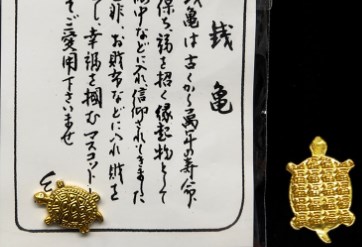 銭亀
銭亀は古くから萬年の寿命
保ち福を招く縁起物として
懐中などに入れ信仰されてきました
是非、お財布などに入れ財を
し幸福を掴むマスコットー
てご愛用下さいませ